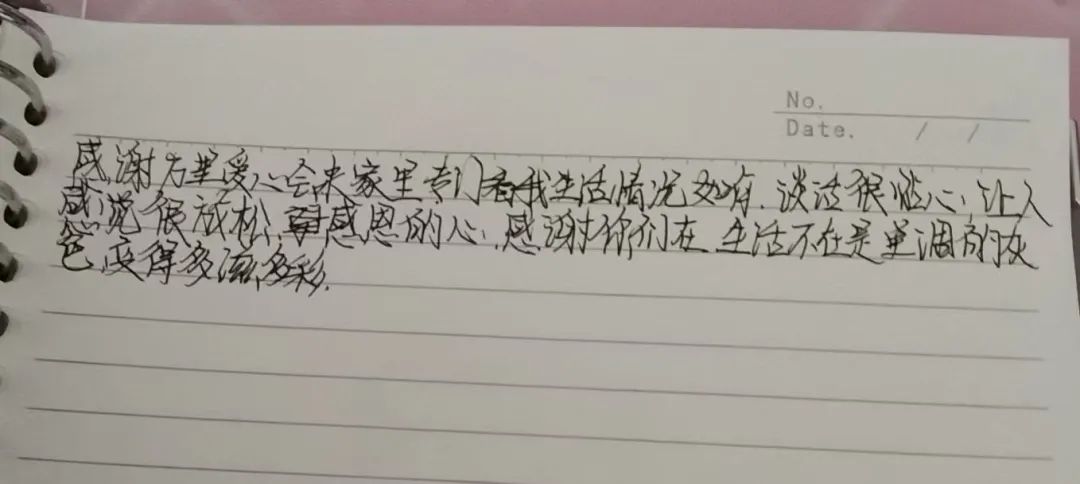 No.
Date. / /
感谢方里爱心会来家里专门看我生活情况如何.谈话很恼心,让人
感觉很放松,感恩的心,感谢你们在 生活不在是单调的灰
色,变得多滋多彩.